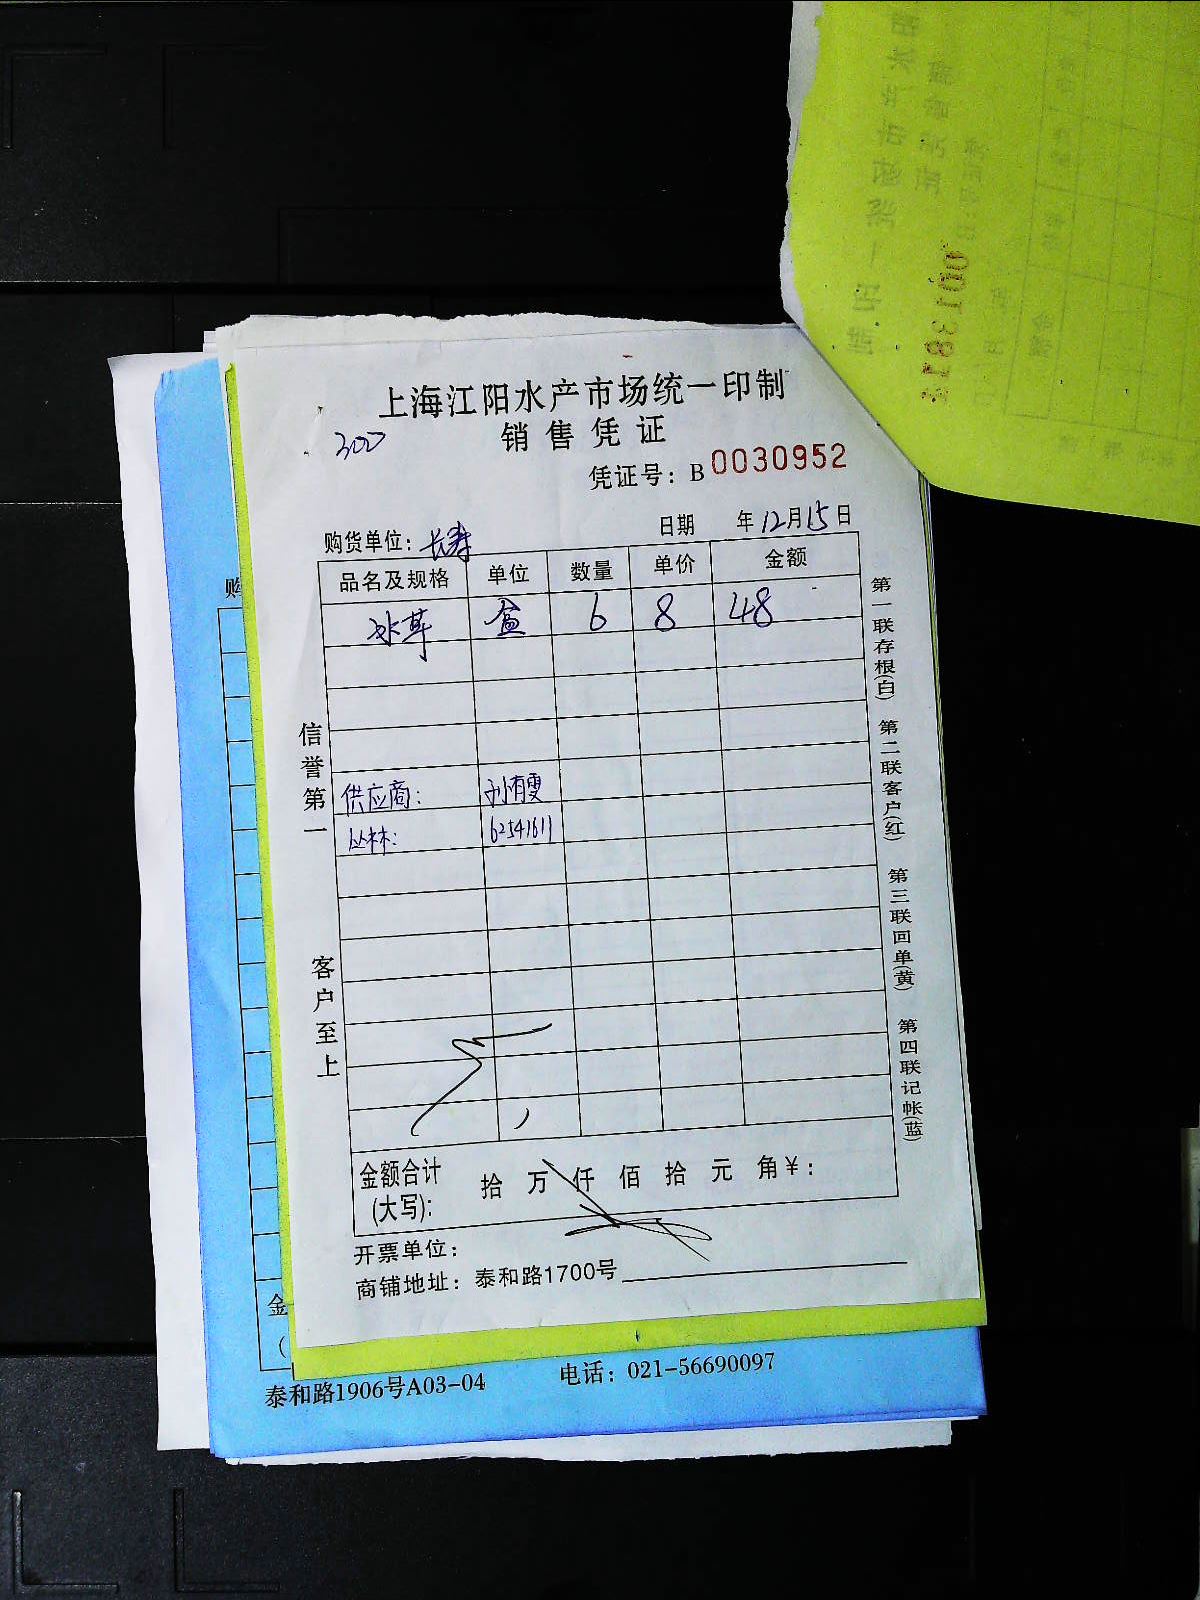 上海江阳水产市场统一印制
销售凭证
300
凭证号：B 0030952
购货单位：长寿
日期 年12月15日
品名及规格 单位 数量 单价 金额
冰草 盒 6 8 48
供应商：
丛林： 62541611
信誉第一
客户至上
第一联存根(白) 第二联客户(红) 第三联回单(黄) 第四联记帐(蓝)
金额合计 拾 万 仟 佰 拾 元 角￥：
(大写)：
开票单位：
商铺地址：泰和路1700号
购
金
(
泰和路1906号A03-04 电话：021-56690097
0013813